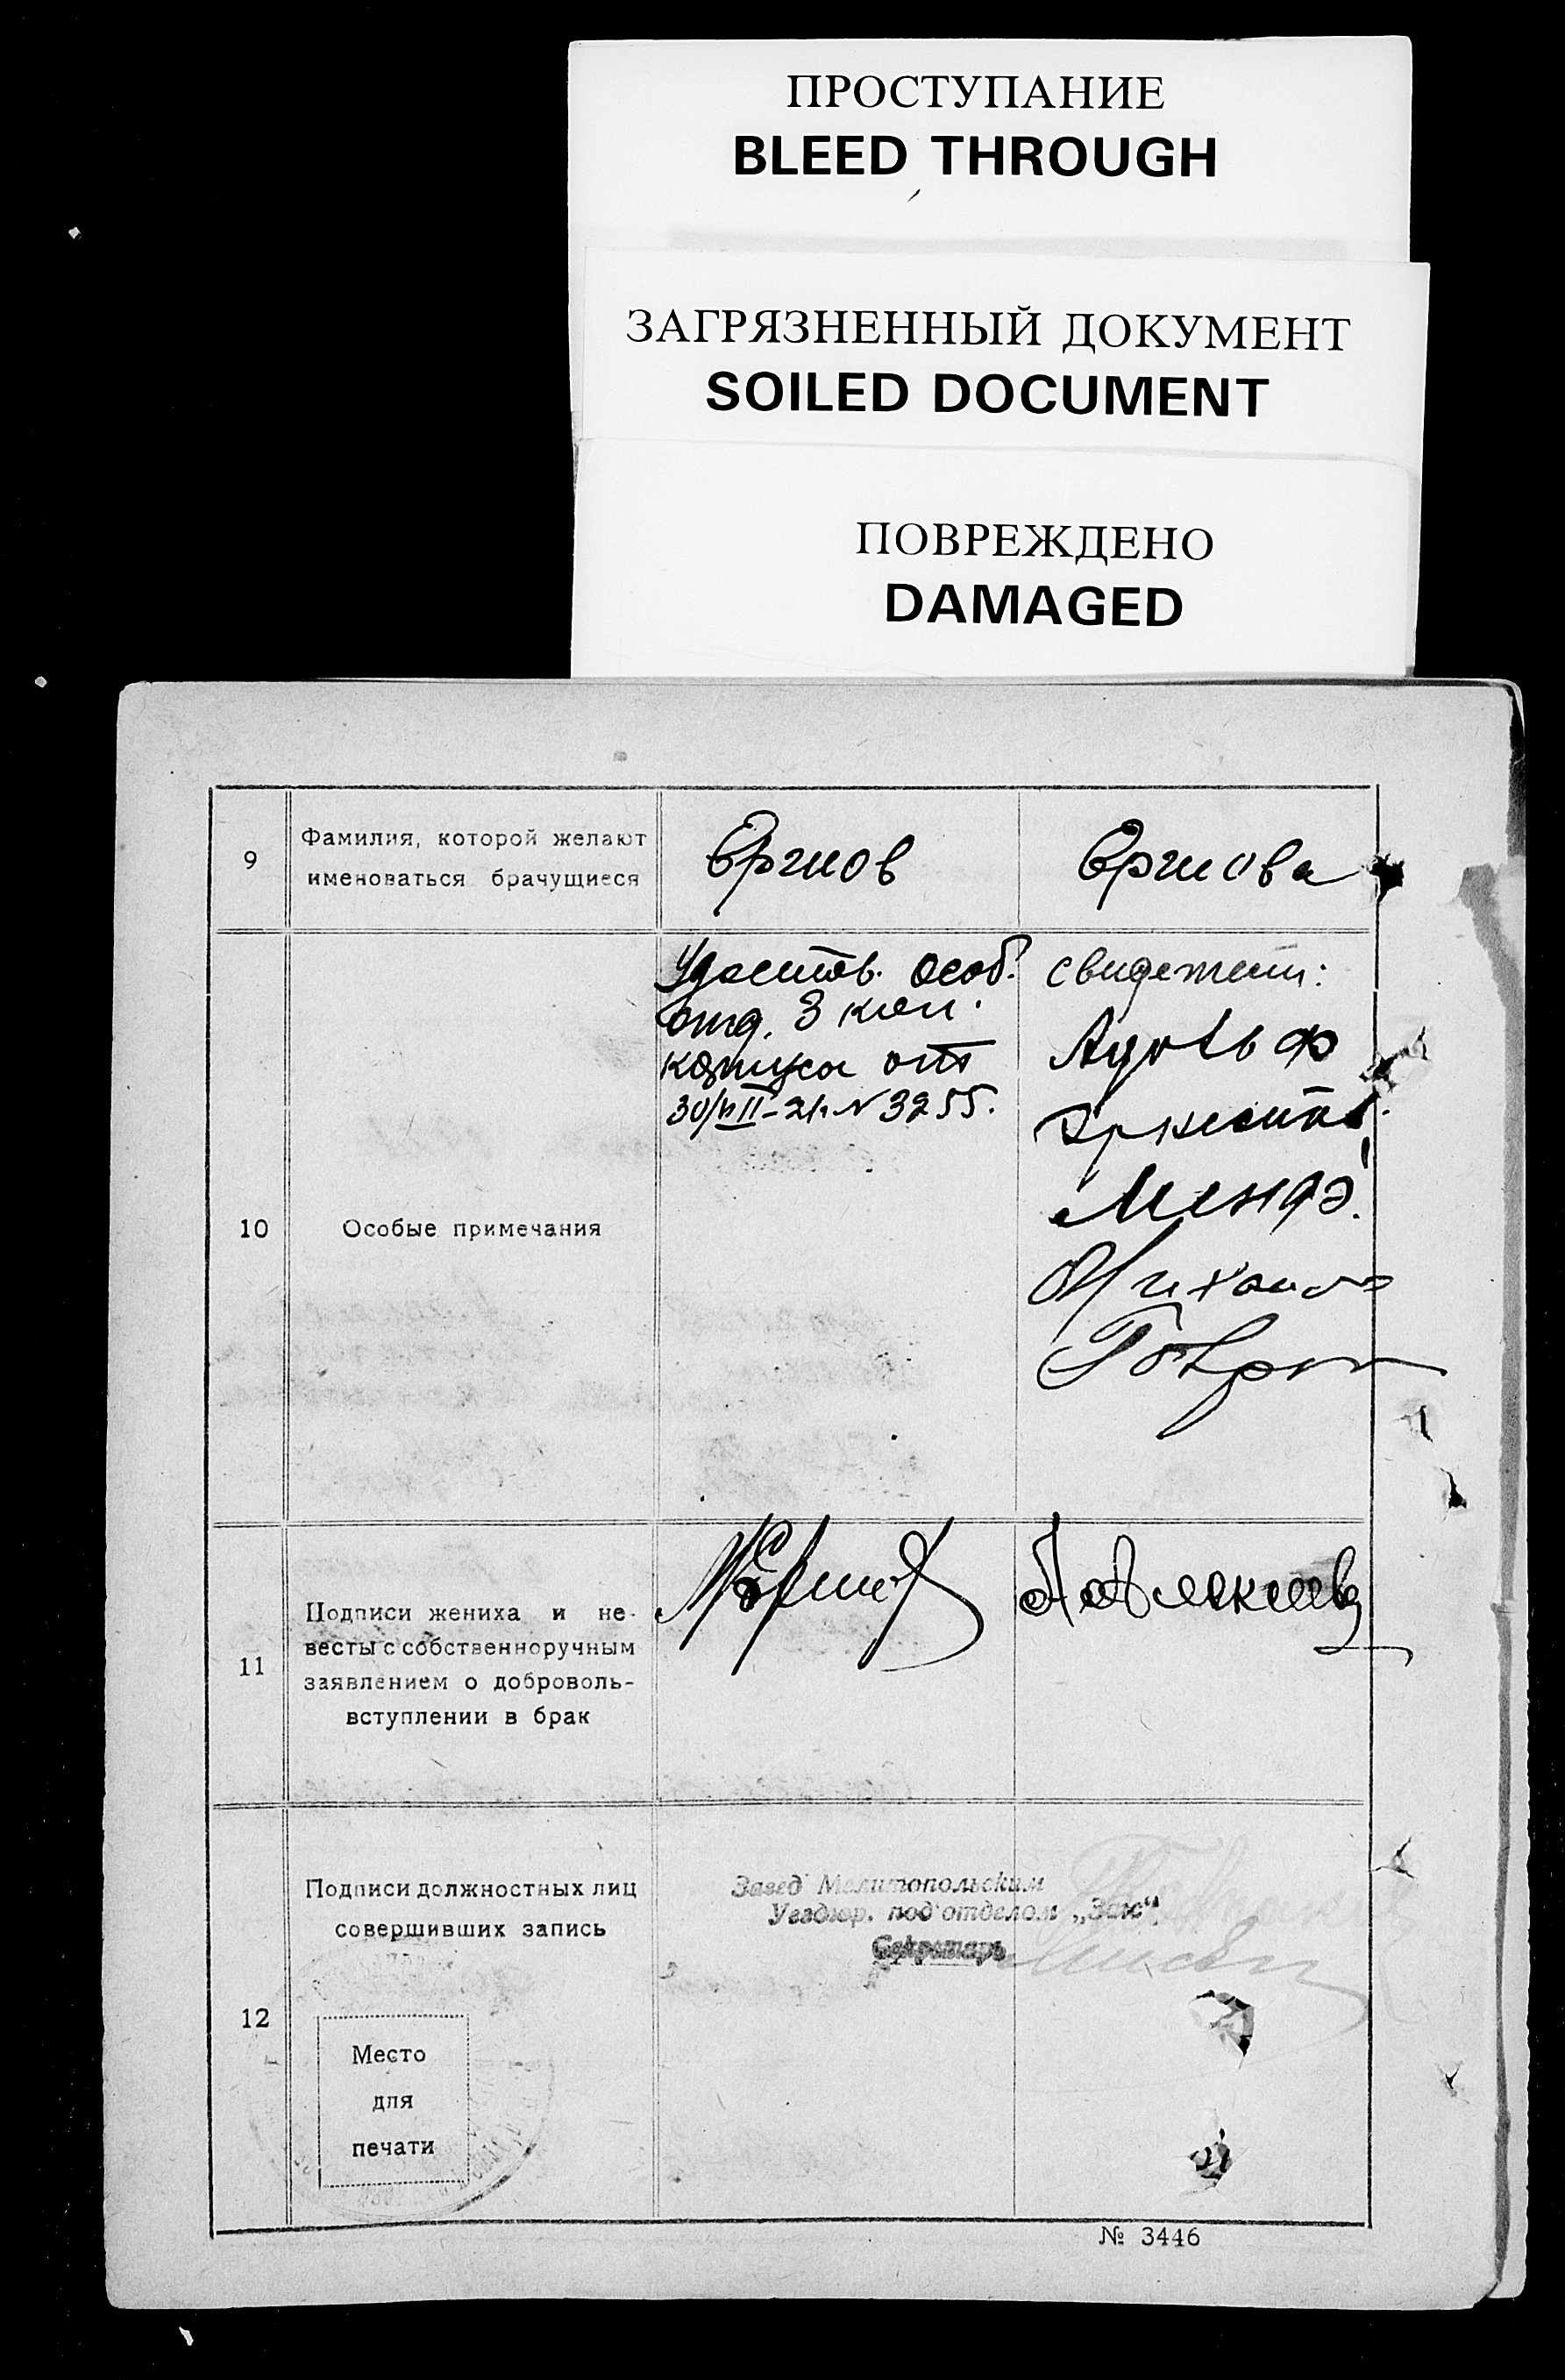 ПРОСТУПАНИЕ
BLEED THROUGH
ЗАГРЯЗНЕННЫЙ ДОКУМЕНТ
SOILED DOCUMENT
ПОВРЕЖДЕНО
DAMAGED
9
Фамилия, которой желают
именоваться брачущиеся
Удостов. особ.
отд. 3 кон.
корпуса от
30/VII-21г. № 3255.
свидетели:
Адольф
Мендэ.
Михаил
10
Особые примечания
11
Подписи жениха и не-
весты с собственноручным
заявлением о доброволь-
вступлении в брак
12
Подписи должностных лиц
совершивших запись
Завед Мелитопольским
Уездюр. под'отделом „Загс“
Секретарь
Место
для
печати
№ 3446